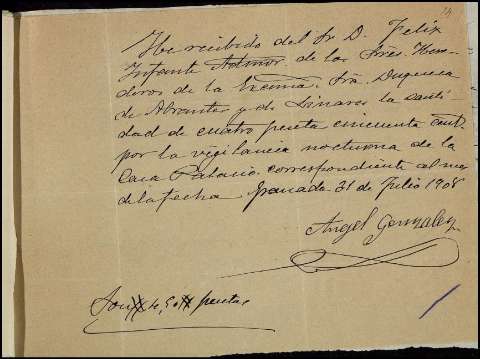 He recibido del Sr D. Felix
Infante Admor. de los Sres. Here-
deros de la Excma. Sra. Duquesa
de Abrantes y de Linares la canti-
dad de cuatro peseta cincuenta cent.
por la vigilancia nocturna de la
Casa Palacio correspondiente al mes
de la fecha Granada 31 de Julio 1908
Angel Gonzalez
pesetas